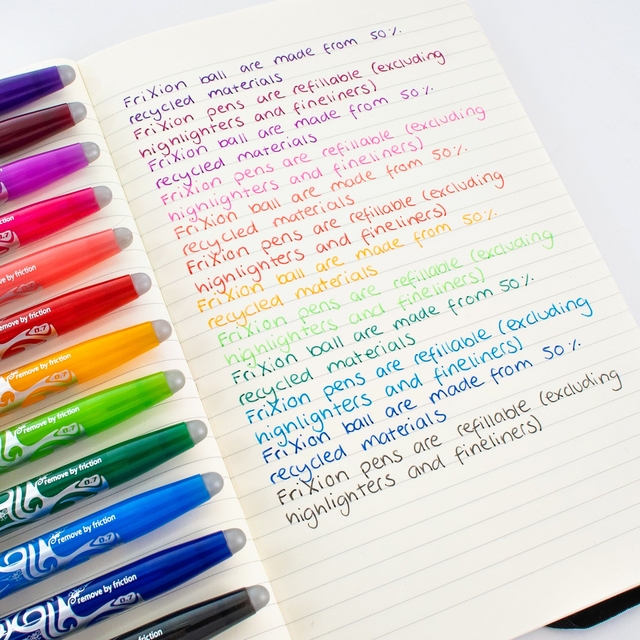 FriXion ball are made from 50%
recycled materials
FriXion pens are refillable (excluding
highlighters and fineliners)
FriXion ball are made from 50%
recycled materials
FriXion pens are refillable (excluding
highlighters and fineliners)
FriXion ball are made from 50%
recycled materials
FriXion pens are refillable (excluding
highlighters and fineliners)
FriXion ball are made from 50%
recycled materials
FriXion pens are refillable (excluding
highlighters and fineliners)
FriXion ball are made from 50%
recycled materials
FriXion pens are refillable (excluding
highlighters and fineliners)
FriXion ball are made from 50%
recycled materials
FriXion pens are refillable (excluding
highlighters and fineliners)
remove by friction
0.7
remove by friction
0.7
remove by friction
0.7
remove by friction
0.7
remove by friction
0.7
remove by friction
0.7
remove by friction
0.7
remove by friction